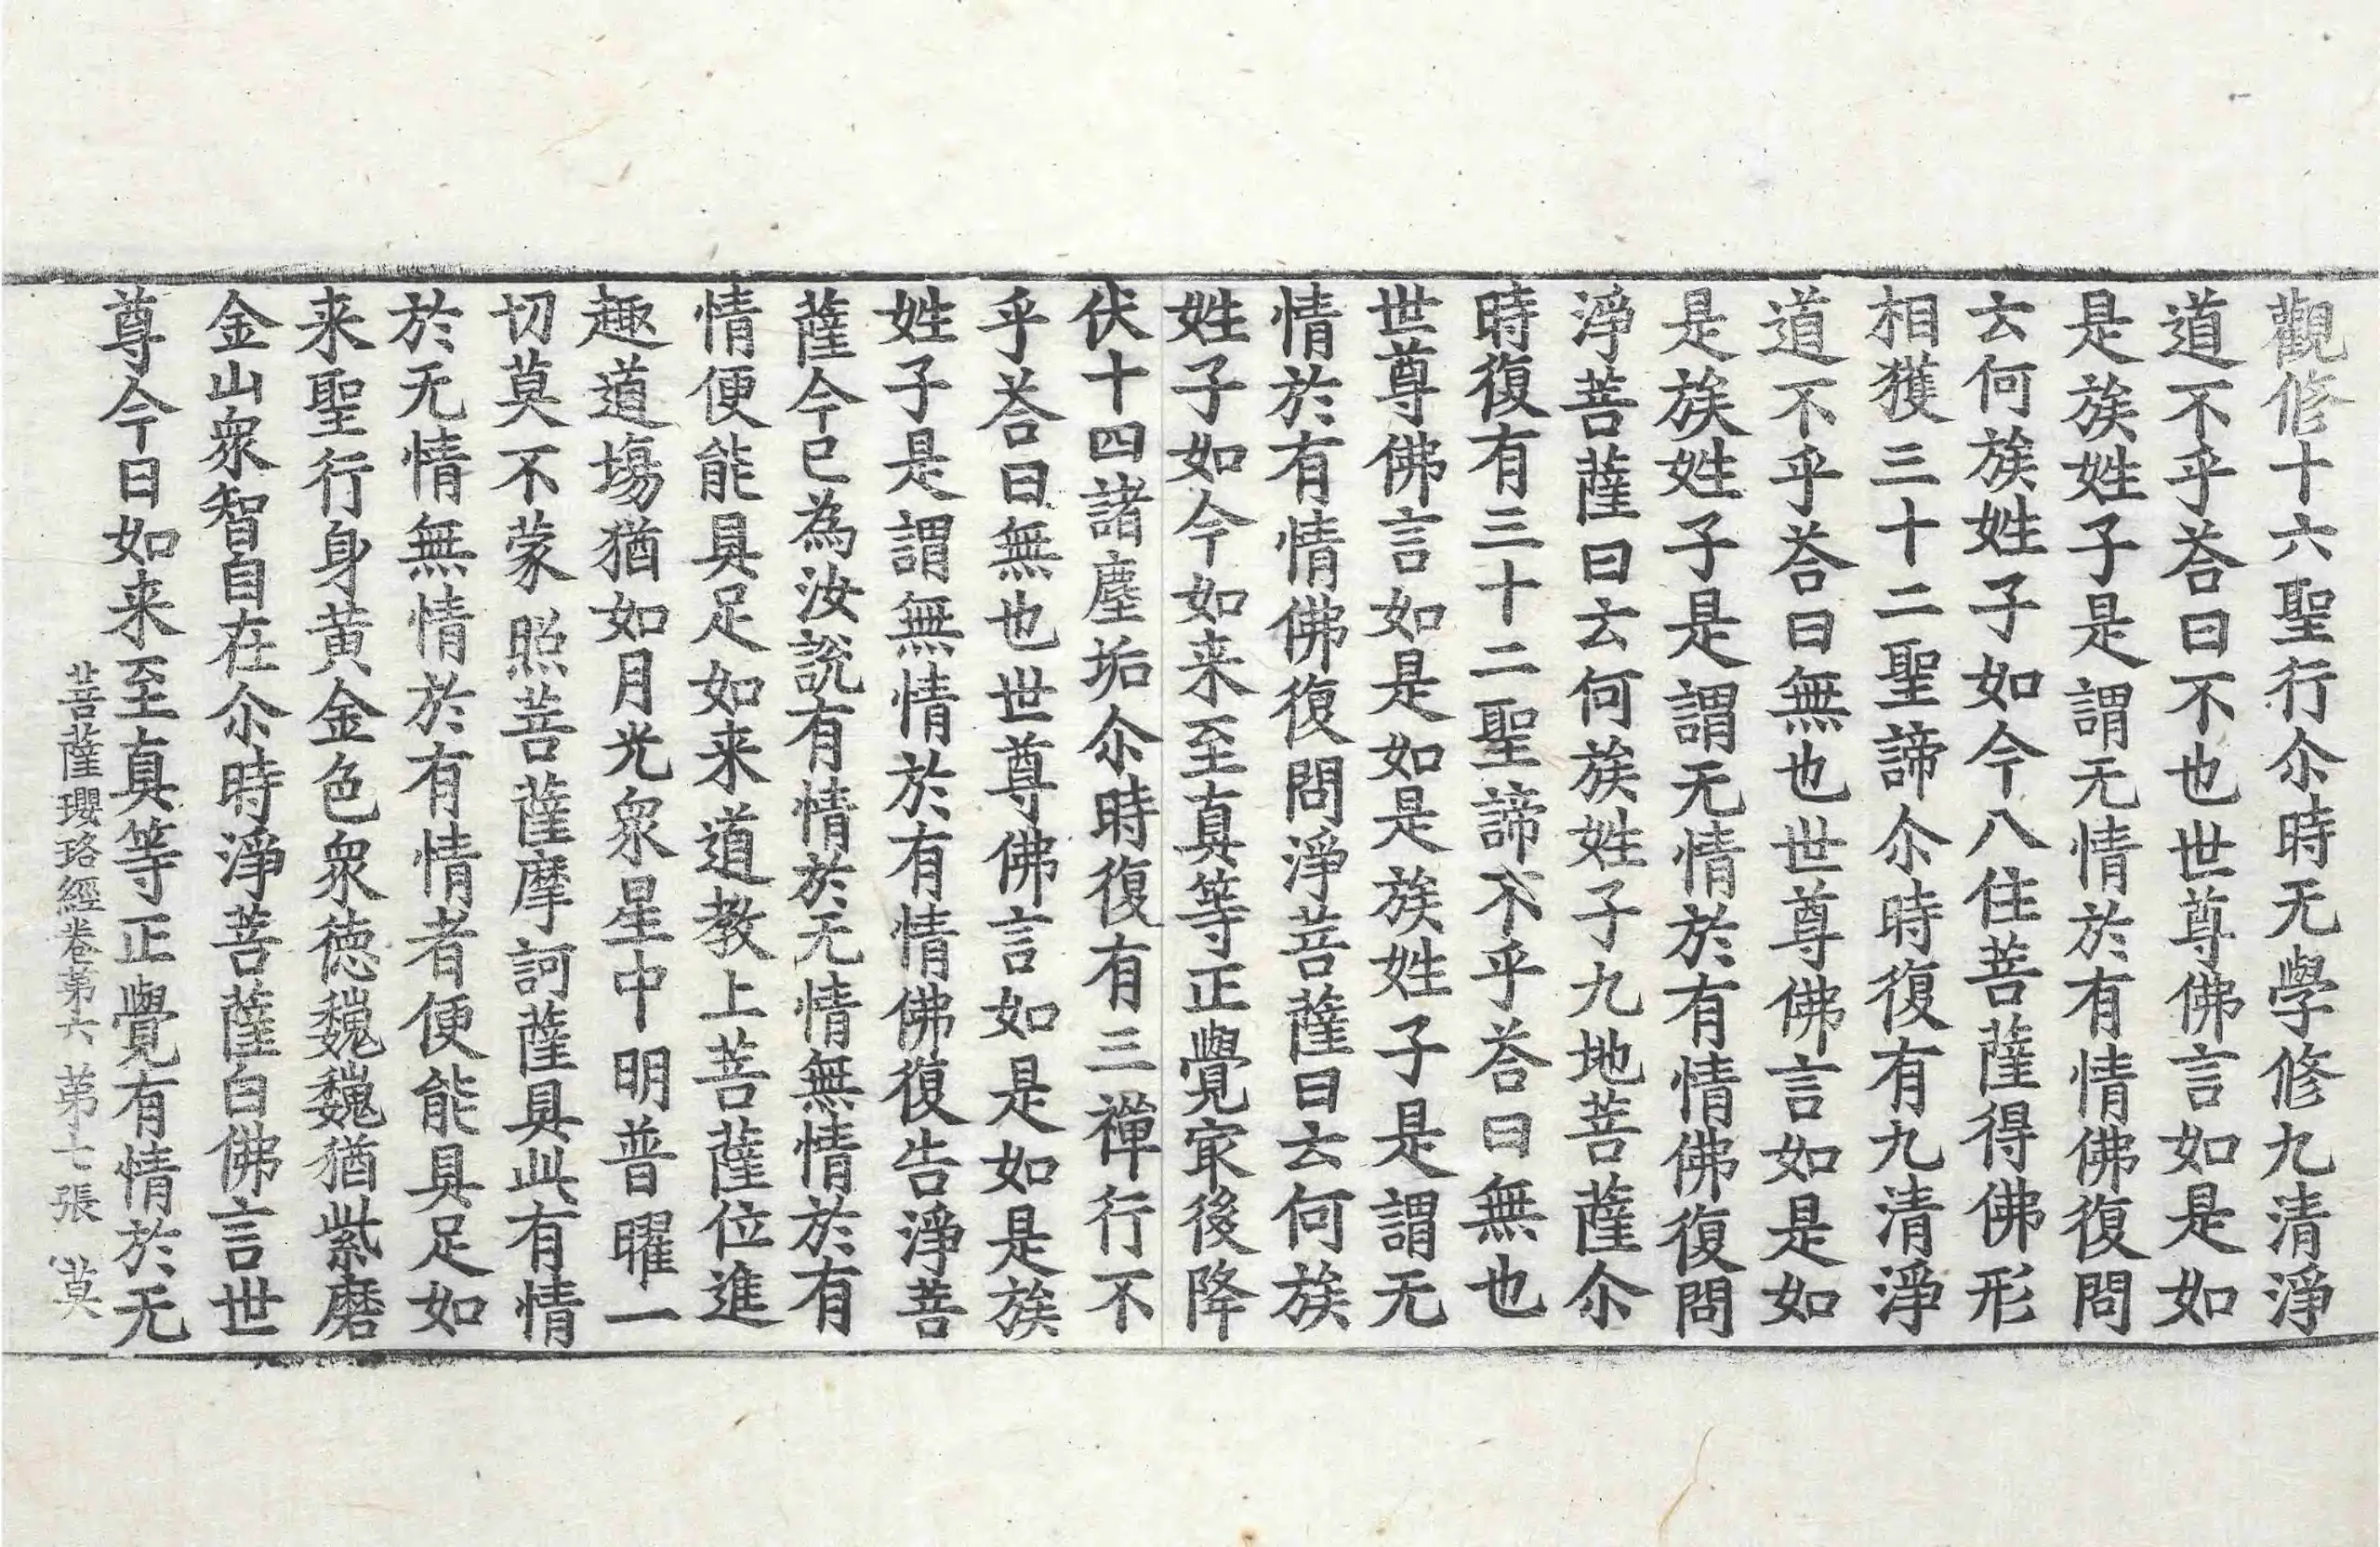 觀修十六聖行尒時无學修九清淨
道不乎荅曰不也世尊佛言如是如
是族姓子是謂无情於有情佛復問
云何族姓子如今八住菩薩得佛形
相獲三十二聖諦尒時復有九清淨
道不乎荅曰無也世尊佛言如是如
是族姓子是謂无情於有情佛復問
淨菩薩曰云何族姓子九地菩薩尒
時復有三十二聖諦不乎荅曰無也
世尊佛言如是如是族姓子是謂无
情於有情佛復問淨菩薩曰云何族
姓子如今如来至真等正覺㝡後降
伏十四諸塵垢尒時復有三禪行不
乎荅曰無也世尊佛言如是如是族
姓子是謂無情於有情佛復告淨菩
薩今已為汝說有情於无情無情於有
情便能具足如来道教上菩薩位進
趣道場猶如月光衆星中明普曜一
切莫不蒙照菩薩摩訶薩具此有情
於无情無情於有情者便能具足如
来聖行身黄金色衆德巍巍猶紫磨
金山衆智自在尒時淨菩薩白佛言世
尊今日如来至真等正覺有情於无
菩薩瓔珞經卷第六 第七張 莫